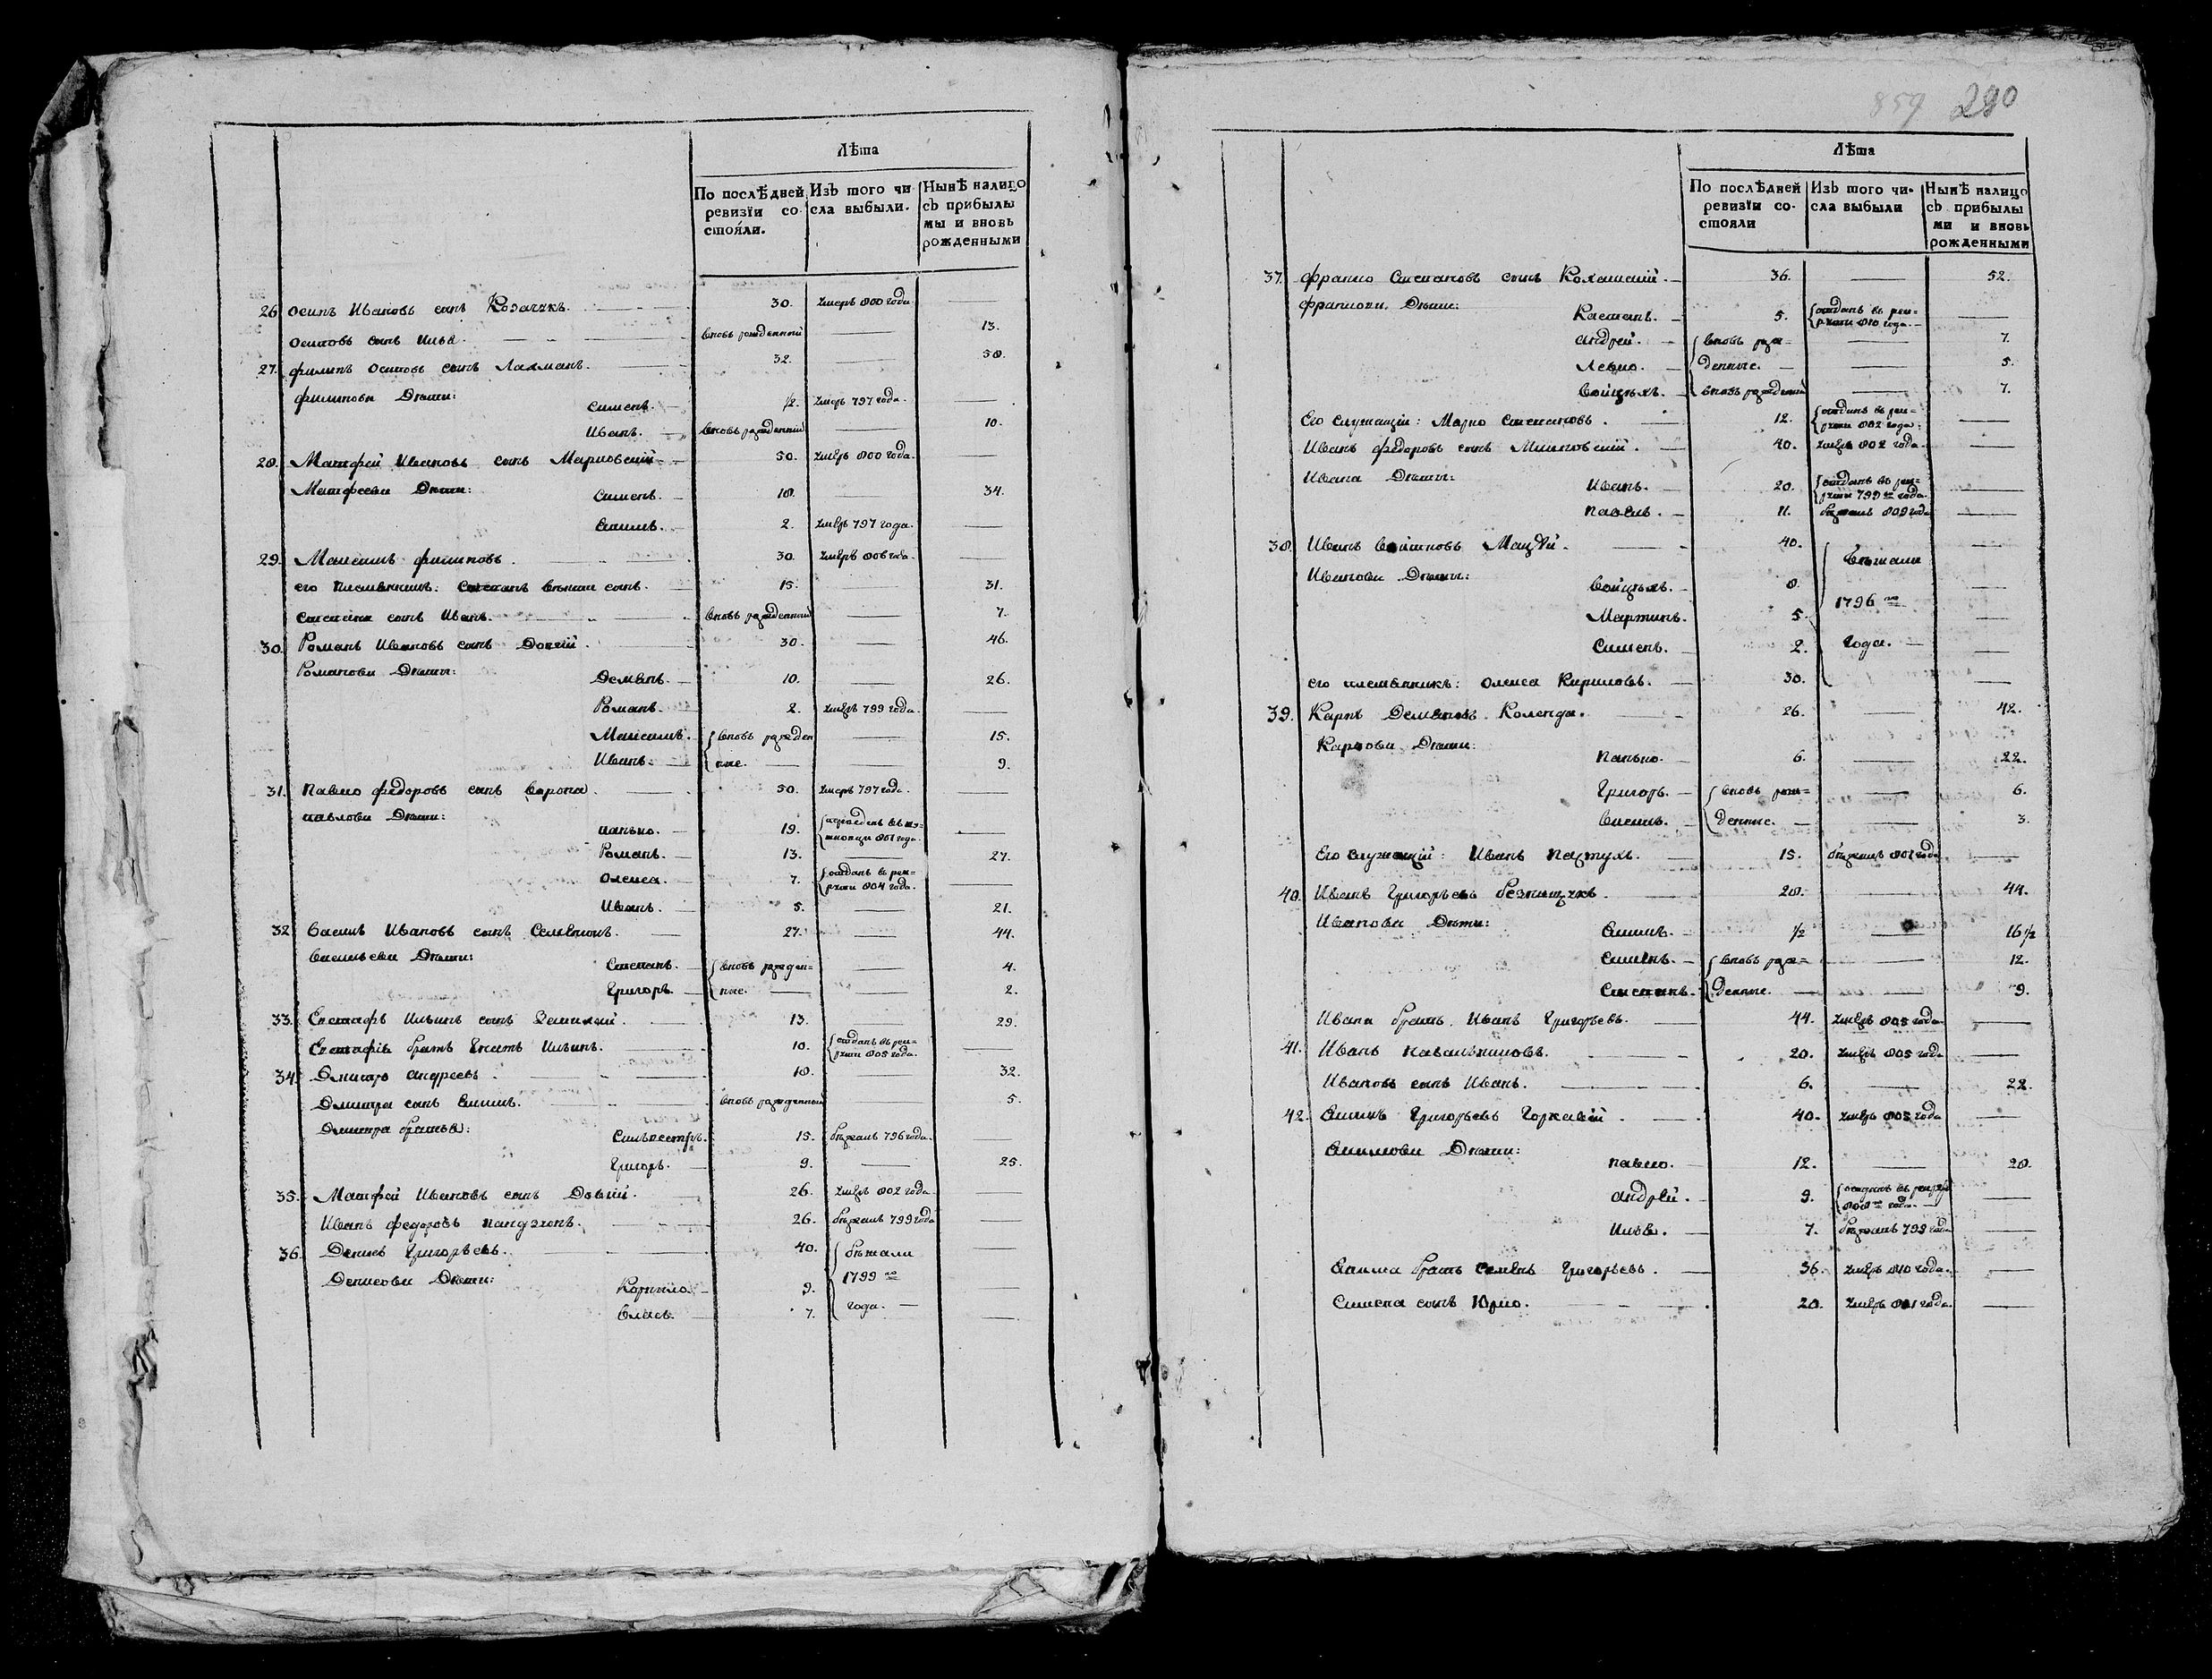 Лѣта
По послѣдней ревизїи состояли.
Изъ того числа выбыли.
Нынѣ налицо съ прибылымы и вновь рожденными
26 осипъ Ивановъ сынъ Козачукъ. 30. умеръ 800 года —
осиповъ сынъ Илья. вновь рожденный — 13.
27. филипъ осиповъ сынъ Лахманъ. 32. — 50.
филипови Дѣти: Сименъ. — 1/2. умеръ 797 года. —
Иванъ. — вновь рожденный — 10.
28. Матфей Ивановъ сынъ 50. умеръ 800 года. —
Матфееви Дѣти: Сименъ. — 18. — 34.
Якимъ. — 2. умеръ 797 года. —
29. Максимъ филиповъ. 30. умеръ 806 года. —
его племянникъ: Степанъ сынъ. 15. — 31.
Степана сынъ Иванъ. вновь рожденный — 7.
30. Романъ Ивановъ сынъ Довгій. 30. — 46.
Романови Дѣти: Демянъ. — 10. — 26.
Романъ. — 2. умеръ 799 года. —
Максимъ. — вновь рожден — 15.
Иванъ. — ные. — 9.
31. Павло федоровъ сынъ Ворона. 50. умеръ 797 года. —
павлови Дѣти: панько. — 19. 801 года. —
Романъ. — 13. — 27.
Олекса. — 7. отданъ въ рек=
руты 804 года. —
Иванъ. — 5. — 21.
32. Василь Ивановъ сынъ 27. — 44.
Васильеви Дѣти: Степанъ. — вновь рожден= — 4.
Григоръ. — ные. — 2.
33. Евстафъ Ильинъ сынъ 13. — 29.
Евстафія братъ Игнатъ Ильинъ. 10. отданъ въ рек=
руты 805 года. —
34. Дмитро Андреевъ. 18. — 32.
Дмитра сынъ Якимъ. вновь рожденный — 5.
Дмитра братья: Сильвестръ. 15. бѣжалъ 796 года. —
Григоръ. 9. — 25.
35. Матфей Ивановъ сынъ Довгій. 26. умеръ 802 года. —
Иванъ федоровъ 26. бѣжалъ 799 года —
36. Денисъ Григорьевъ. 40. бѣжали —
Денисови Дѣти: Корнило. — 9. 1799 го —
Власъ. 7. года. — —
859 280
Лѣта
По послѣдней ревизїи состояли
Изъ того числа выбыли
Нынѣ налицо съ прибылыми и вновь рожденными
37. франко Степановъ сынъ 36. — 52.
франкови Дѣти: Касианъ. — 5. отданъ въ рек=
руты 810 года. —
Андрей. — вновь рож= — 7.
Левко. — денные. — 5.
Войцѣхъ. — вновь рожденный — 7.
Его служащій: Марко Степановъ. 12. отданъ въ рек=
руты 802 года. —
Иванъ федоровъ сынъ 40. умеръ 802 года. —
Ивана Дѣти: Иванъ. — 20. отданъ въ рек=
руты 799 го года. —
павелъ. — 11. бѣжалъ 809 года —
38. Иванъ Войтковъ 40. бѣжали —
Иванови Дѣти: Войцѣхъ. — 8. —
Мартинъ. 5. 1796 го —
Сименъ. — 2. года. — —
его племянникъ: Олекса Кириловъ. — 30. —
39. Карпъ Демяновъ Коленда. 26. — 42.
Карпови Дѣти: панько. — 6. — 22.
Григоръ. — вновь рож= — 6.
Василь. — денные. — 3.
Его служащій: Иванъ пастухъ. 15. бѣжалъ 801 года —
40. Иванъ Григорьевъ 28. — 44.
Иванови Дѣти: Якимъ. — 1/2 — 16 1/2
Сименъ. — вновь рож= — 12.
Степанъ. денные. — 9.
Ивана братъ Иванъ Григорьевъ. 44. умеръ 805 года. —
41. Иванъ 20. умеръ 805 года —
Ивановъ сынъ Иванъ. 6. — 22.
42. Якимъ Григорьевъ 40. умеръ 805 года —
Якимови Дѣти: павло. — 12. — 28.
Андрей. — 9. отданъ въ рекруты
808 го года. —
Илья. — 7. бѣжалъ 799 года —
Якима братъ Семенъ Григорьевъ. 36. умеръ 810 года. —
Симена сынъ Юрко. 20. умеръ 801 года. —